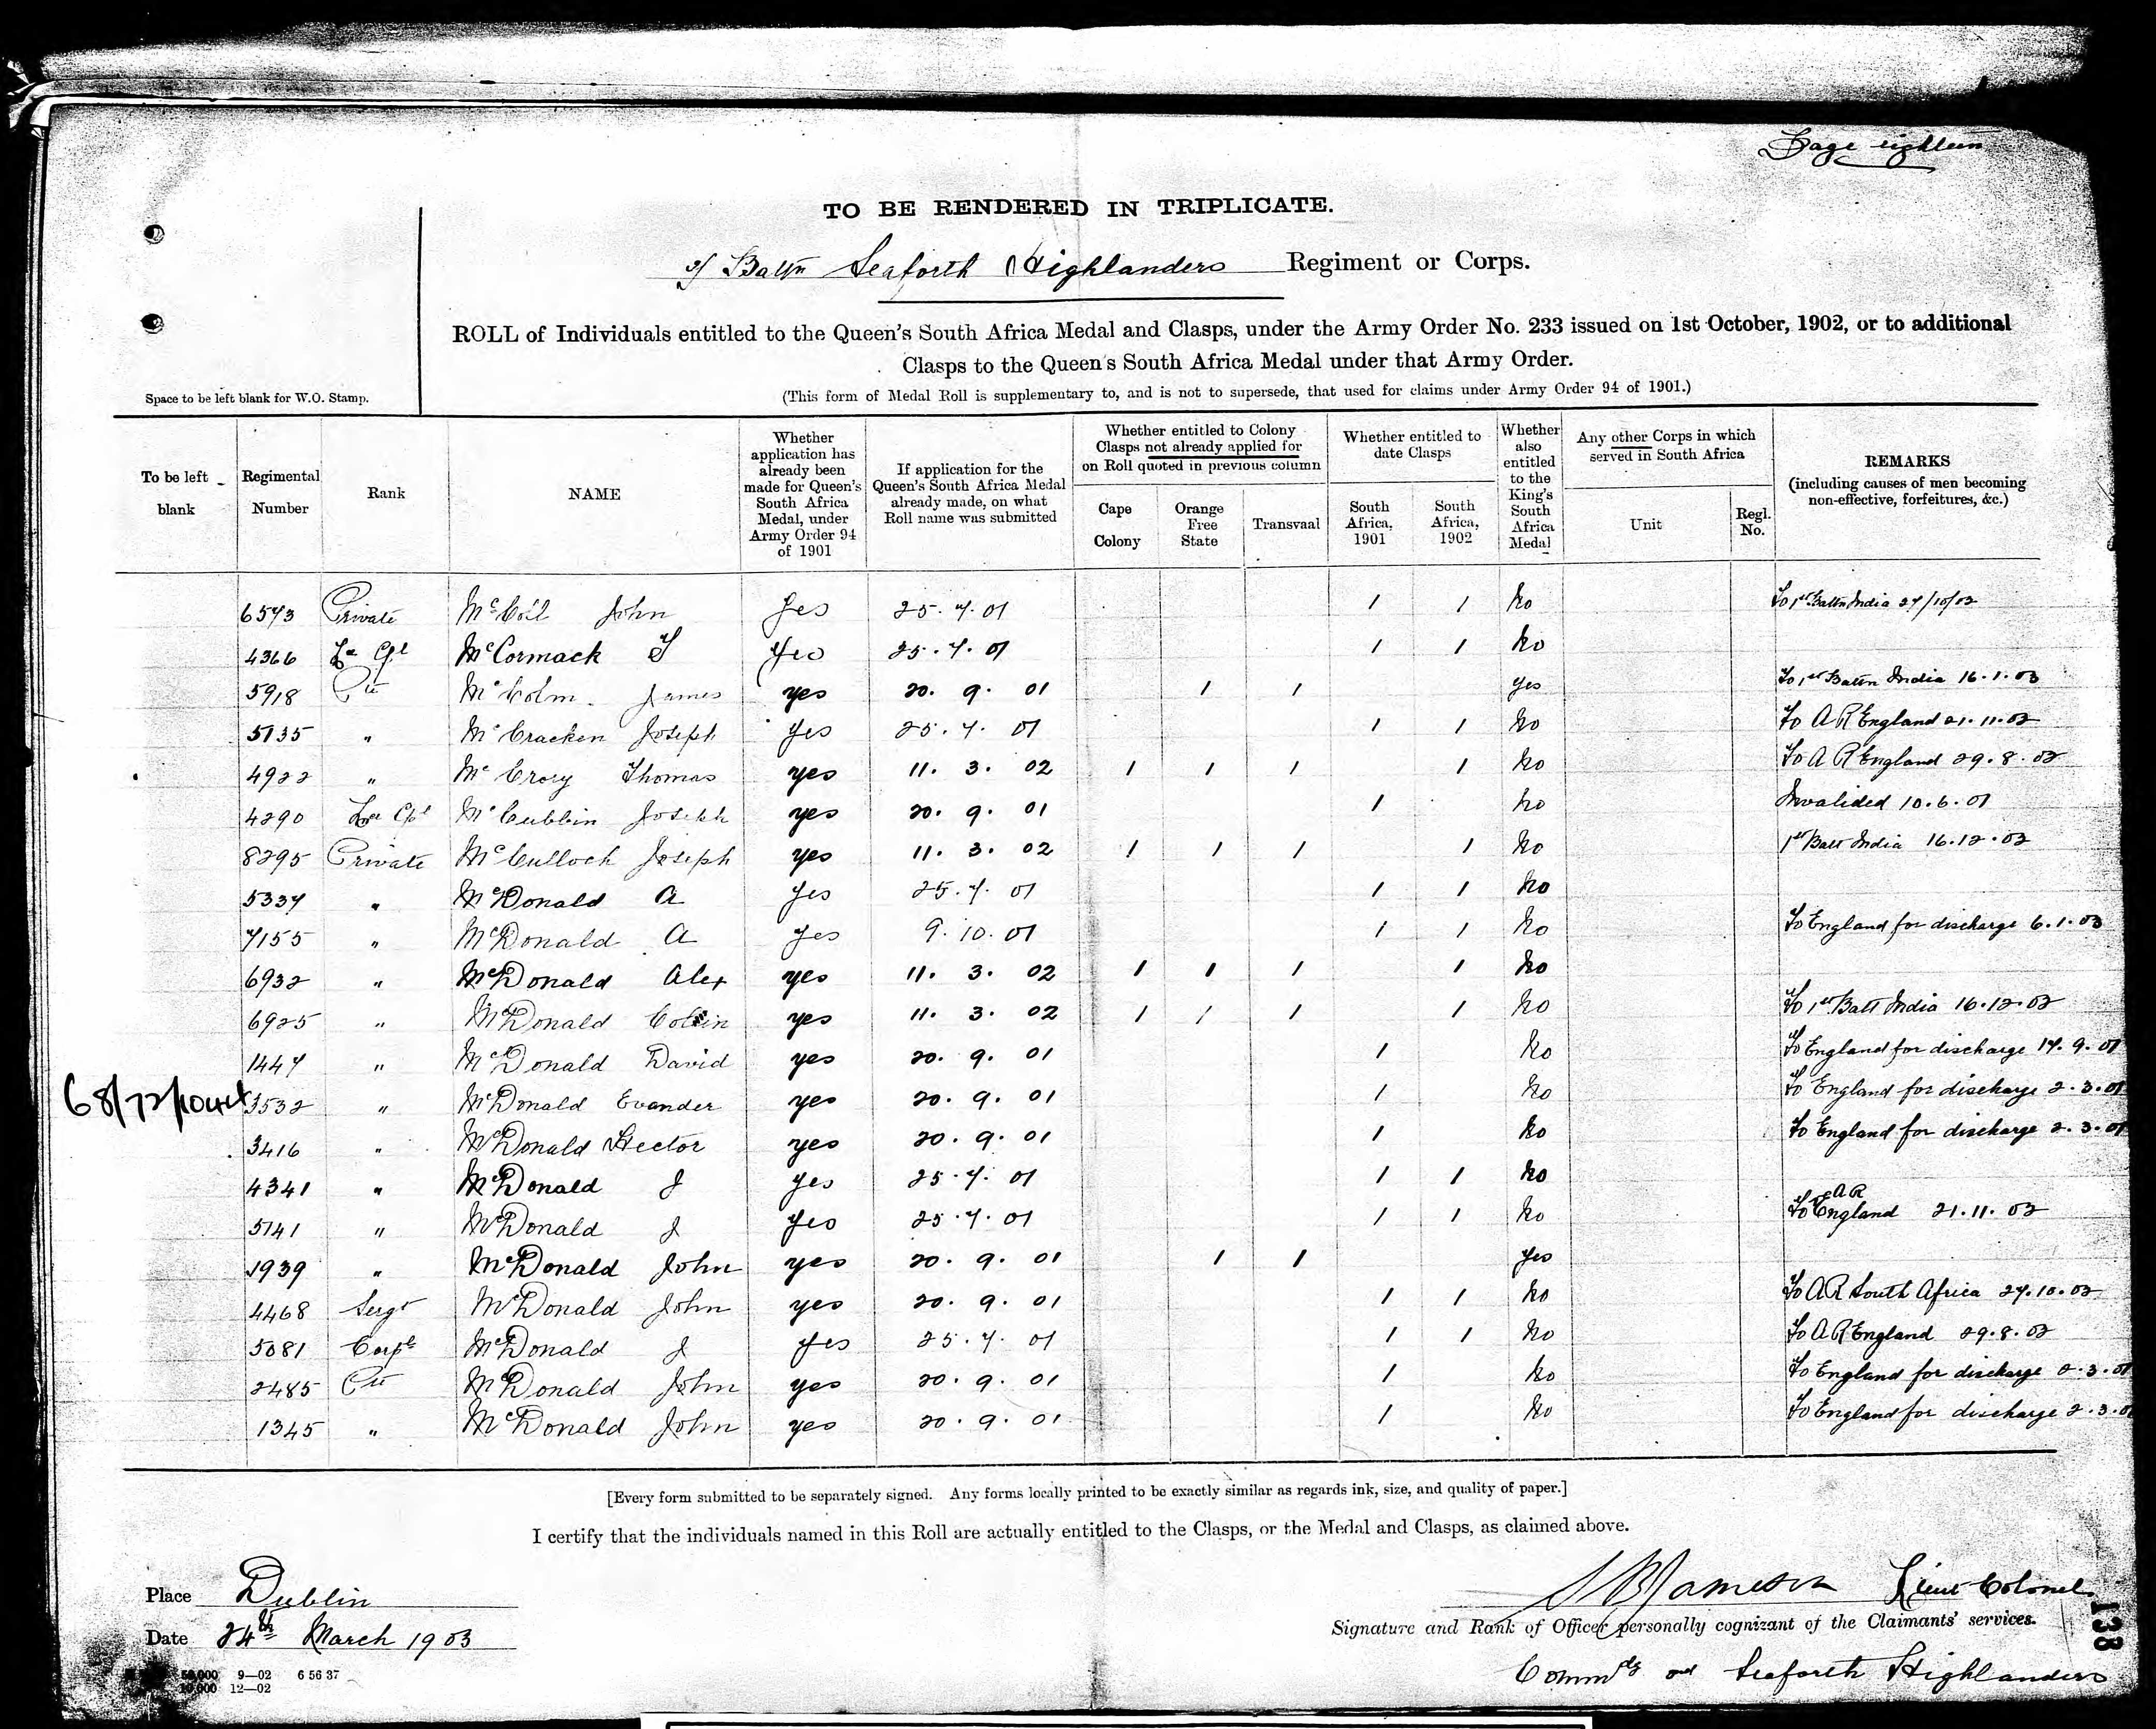 Page eighteen
TO BE RENDERED IN TRIPLICATE.
2/ Battn Seaforth Highlanders Regiment or Corps.
ROLL of Individuals entitled to the Queen's South Africa Medal and Clasps, under the Army Order No. 233 issued on 1st October, 1902, or to additional
Clasps to the Queen's South Africa Medal under that Army Order.
(This form of Medal Roll is supplementary to, and is not to supersede, that used for claims under Army Order 94 of 1901.)
Space to be left blank for W.O. Stamp.
To be left blank
Regimental Number
Rank
NAME
Whether application has already been made for Queen's South Africa Medal, under Army Order 94 of 1901
If application for the Queen's South Africa Medal already made, on what Roll name was submitted
Whether entitled to Colony Clasps not already applied for on Roll quoted in previous column
Cape Colony
Orange Free State
Transvaal
Whether entitled to date Clasps
South Africa, 1901
South Africa, 1902
Whether also entitled to the King's South Africa Medal
Any other Corps in which served in South Africa
Unit
Regl. No.
REMARKS
(including causes of men becoming non-effective, forfeitures, &c.)
6573 Private McCoil John Yes 25.7.01 1 1 No To 1st Battn India 27/10/02
4366 Le Cpl McCormack T Yes 25.7.01 1 1 No
5918 Pte McColm James yes 20.9.01 1 1 yes To 1st Battn India 16.1.03
5735 " McCracken Joseph Yes 25.7.01 1 1 No To A R England 21.11.02
4922 " McCrory Thomas yes 11.3.02 1 1 1 1 No To A R England 29.8.02
4290 Le Cpl McCubbin Joseph yes 20.9.01 1 No Invalided 10.6.01
8295 Private McCulloch Joseph yes 11.3.02 1 1 1 1 No 1st Batt India 16.12.02
5337 " McDonald A Yes 25.7.01 1 1 No
7155 " McDonald A Yes 9.10.01 1 1 No To England for discharge 6.1.03
6932 " McDonald Alex yes 11.3.02 1 1 1 1 No
6925 " McDonald Colin yes 11.3.02 1 1 1 1 No To 1st Batt India 16.12.02
1447 " McDonald David yes 20.9.01 1 No To England for discharge 17.9.01
68/72/ 3532 " McDonald Evander yes 20.9.01 1 No To England for discharge 2.3.01
3416 " McDonald Hector yes 20.9.01 1 No To England for discharge 2.3.01
4341 " McDonald J yes 25.7.01 1 1 No
5141 " McDonald J Yes 25.7.01 1 1 No To A R England 21.11.02
1939 " McDonald John yes 20.9.01 1 1 yes
4468 Sergt McDonald John yes 20.9.01 1 1 No To A R South Africa 27.10.02
5081 Corpl McDonald J Yes 25.7.01 1 1 No To A R England 29.8.02
2485 Pte McDonald John yes 20.9.01 1 No To England for discharge 2.3.01
1345 " McDonald John yes 20.9.01 1 No To England for discharge 2.3.01
[Every form submitted to be separately signed. Any forms locally printed to be exactly similar as regards ink, size, and quality of paper.]
I certify that the individuals named in this Roll are actually entitled to the Clasps, or the Medal and Clasps, as claimed above.
Place Dublin
Jameson Lieut Colonel
Signature and Rank of Officer personally cognizant of the Claimants' services.
Date 24th March 1903
Commdg 2nd Seaforth Highlanders
138
50,000 9—02 6 56 37
10,000 12—02